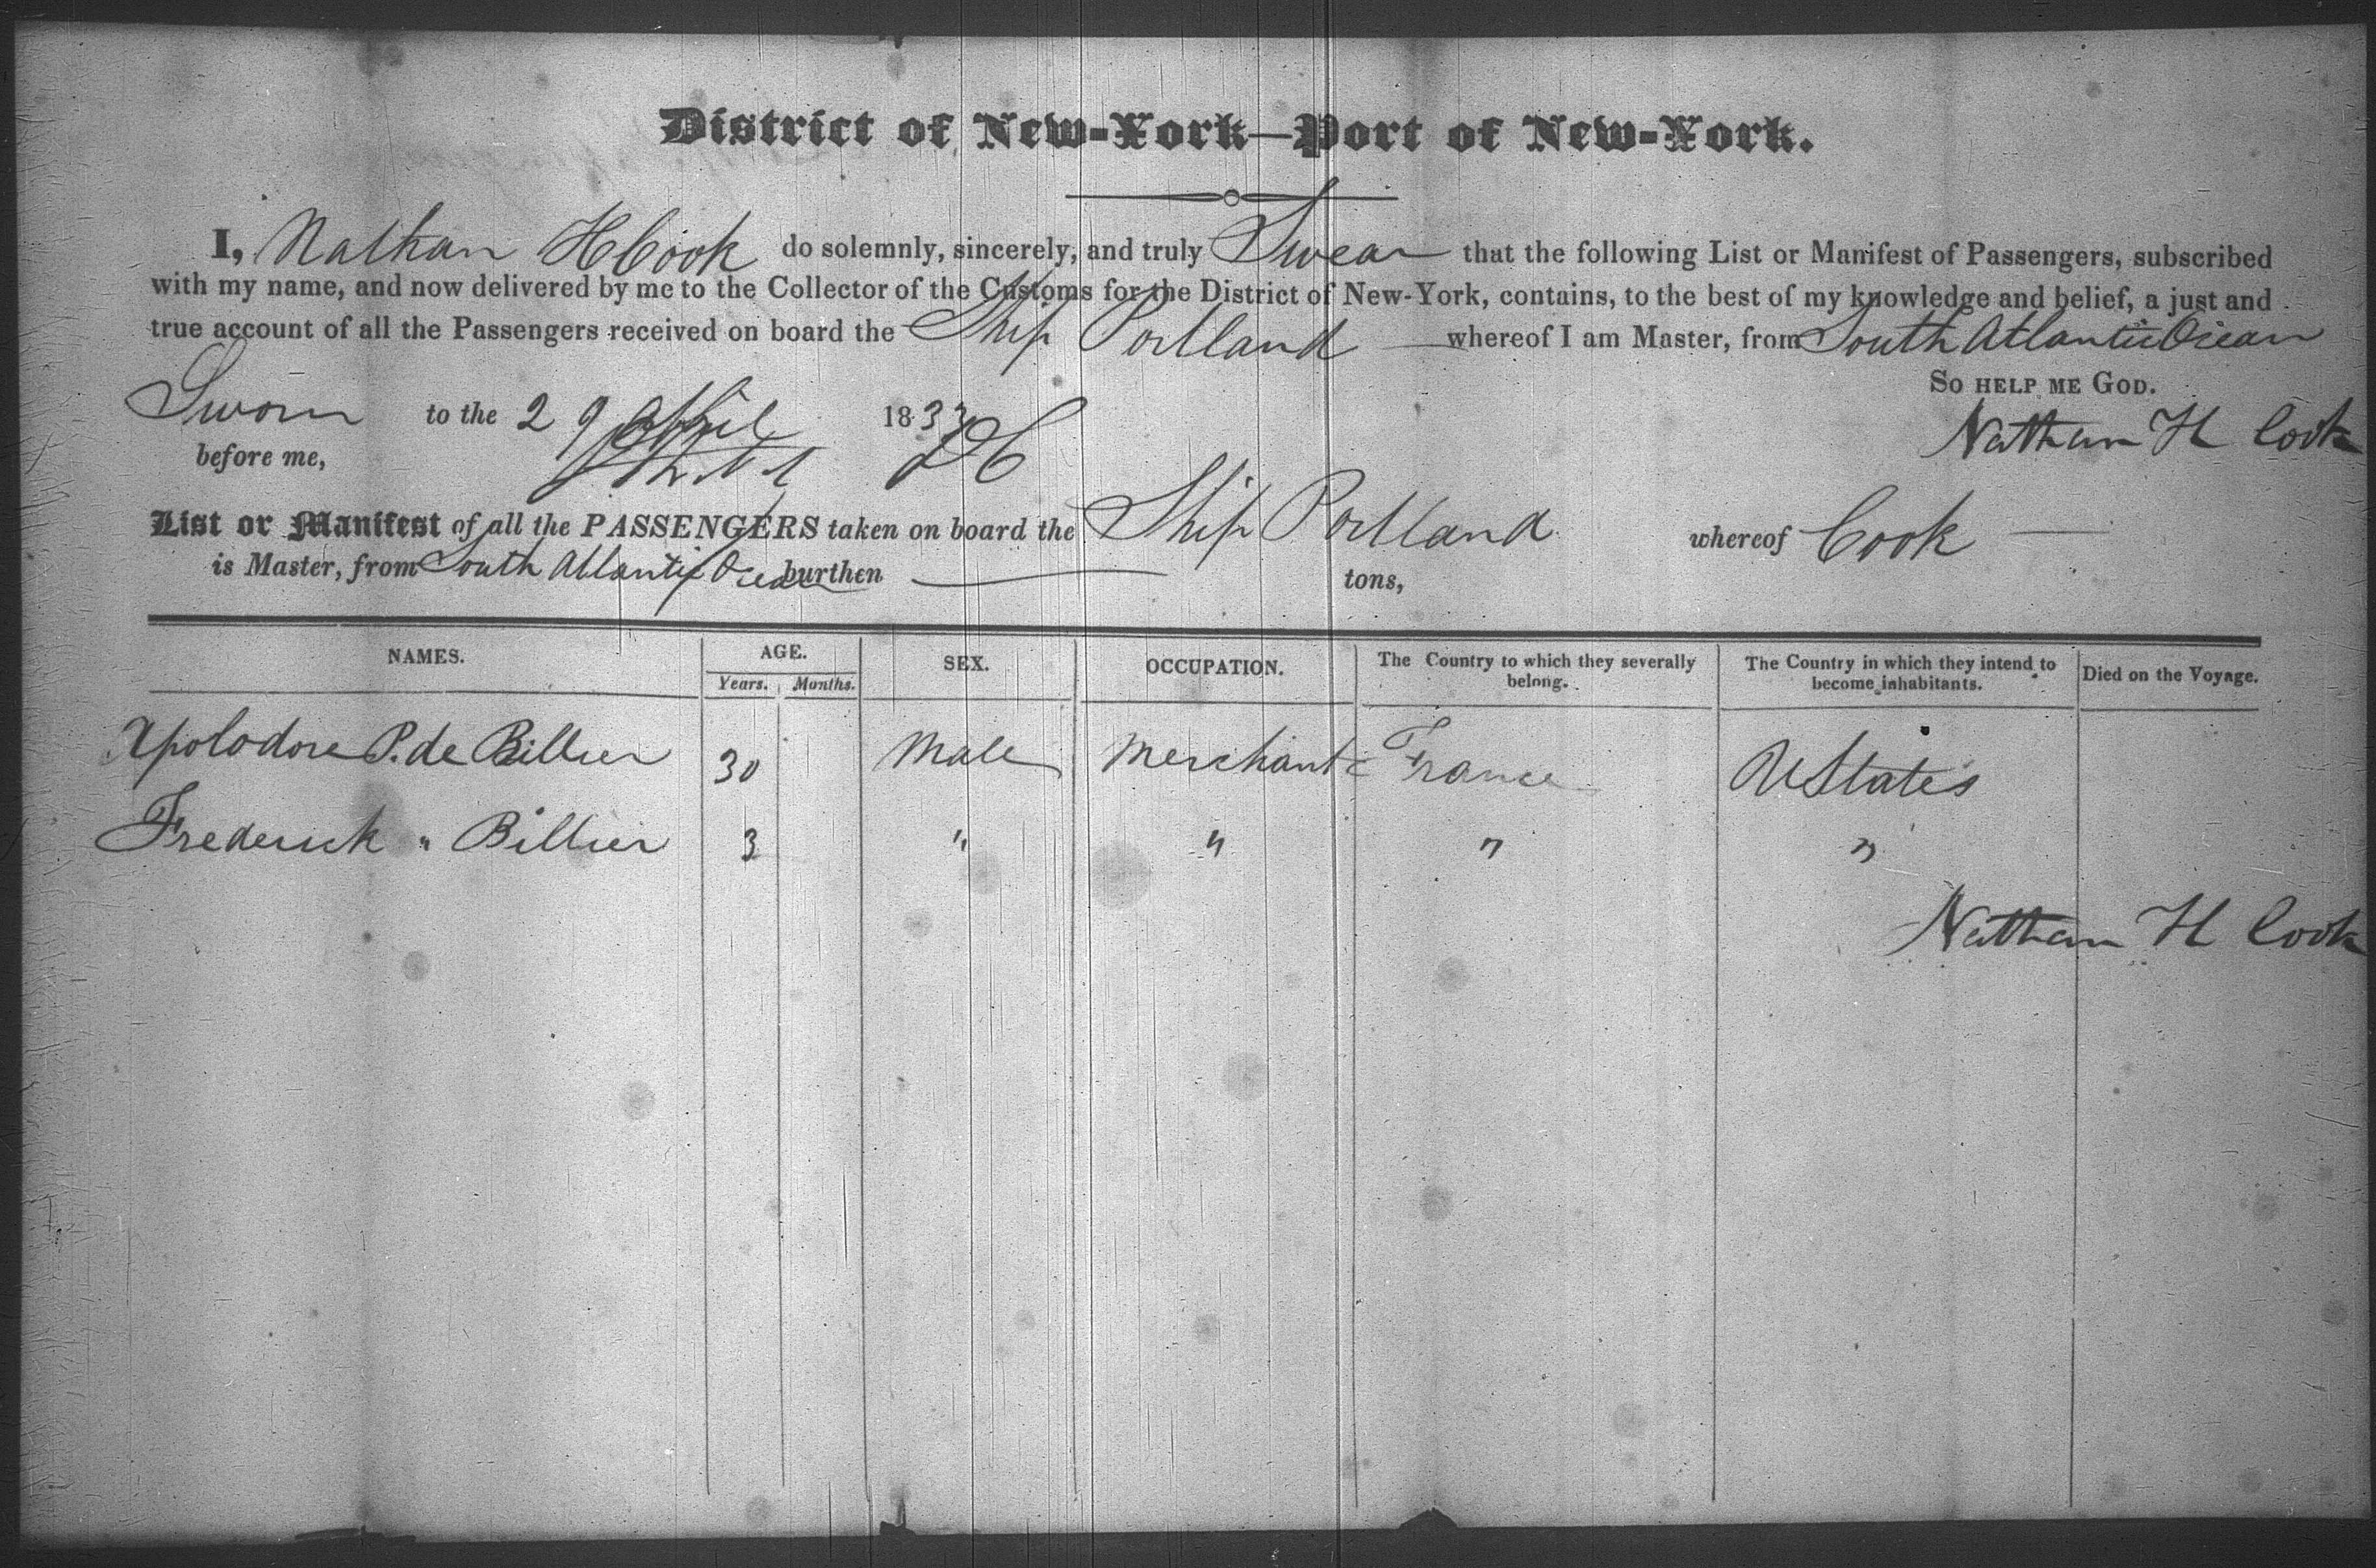 District of New-York—Port of New-York.
I, Nathan H Cook do solemnly, sincerely, and truly Swear that the following List or Manifest of Passengers, subscribed
with my name, and now delivered by me to the Collector of the Customs for the District of New-York, contains, to the best of my knowledge and belief, a just and
true account of all the Passengers received on board the Ship Portland whereof I am Master, from South Atlantic Ocean
So help me God.
Sworn to the 29 April 1833
Nathan H Cook
before me,
List or Manifest of all the PASSENGERS taken on board the Ship Portland whereof Cook
is Master, from South Atlantic Ocean burthen — tons,
NAMES. AGE. Years. Months. SEX. OCCUPATION. The Country to which they severally belong. The Country in which they intend to become inhabitants. Died on the Voyage.
Apolodore P. de Billier 30 Male Merchant France U States
Frederick " Billier 3 " " " "
Nathan H Cook